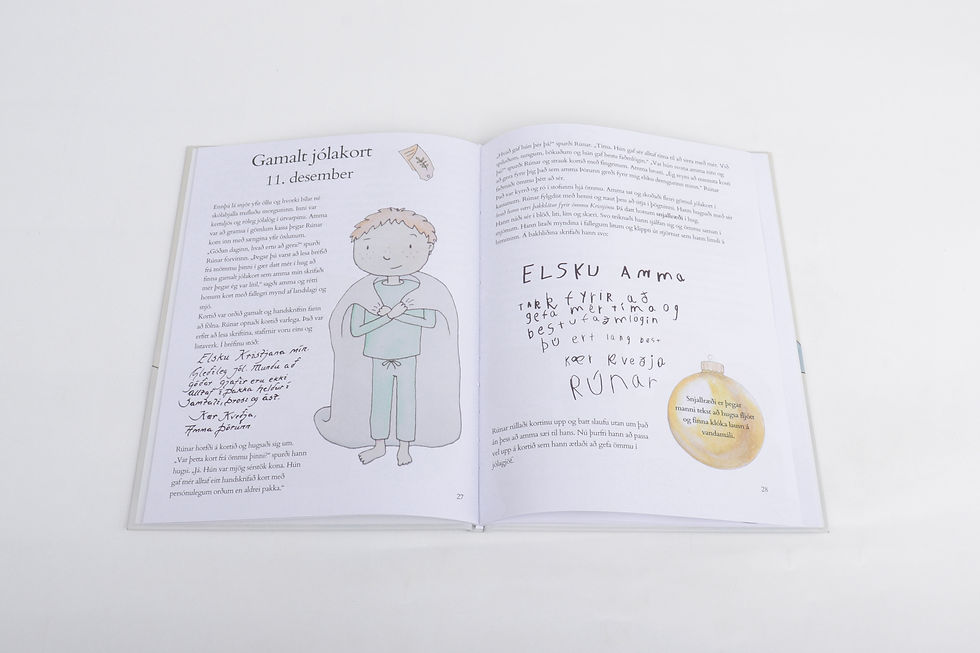 Gamalt jólakort
11. desember
Ennþá lá snjór yfir öllu og hvorki bílar né
skólabjalla trufluðu morguninn. Inni var
kertaljós og róleg jólalög í útvarpinu. Amma
var að gramsa í gömlum kassa þegar Rúnar
kom inn með sængina yfir öxlunum.
„Góðan daginn, hvað ertu að gera?“ spurði
Rúnar forvitinn. „Þegar þú varst að lesa bréfið
frá mömmu þinni í gær datt mér í hug að
finna gamalt jólakort sem amma mín skrifaði
mér þegar ég var lítil,“ sagði amma og rétti
honum kort með fallegri mynd af landslagi og
snjó.
Kortið var orðið gamalt og handskriftin farin
að fölna. Rúnar opnaði kortið varlega. Það var
erfitt að lesa skriftina, stafirnir voru eins og
listaverk. Í bréfinu stóð:
Elsku Kristjana mín.
Gleðileg jól. Mundu að
góðar gjafir eru ekki
alltaf í pakka heldur í
samtali, þrosi og ást.
Kær kveðja,
Amma Þórunn
Rúnar horfði á kortið og hugsaði sig um.
„Var þetta kort frá ömmu þinni?“ spurði hann
hugsi. „Já. Hún var mjög sérstök kona. Hún
gaf mér alltaf eitt handskrifað kort með
persónulegum orðum en aldrei pakka.“
27
„Hvað gaf hún þér þá?“ spurði Rúnar. „Tíma. Hún gaf sér alltaf tíma til að vera með mér. Við
spiluðum, sungum, bökuðum og hún gaf bestu faðmlögin.“ „Var hún svona amma eins og
þú?“ spurði Rúnar og strauk kortið með fingrinum. Amma brosti. „Ég reyni að minnsta kosti
að gera fyrir þig það sem amma Þórunn gerði fyrir mig elsku drengurinn minn.“ Rúnar
faðmaði ömmu þétt að sér.
Það var kyrrð og ró í stofunni hjá ömmu. Amma sat og skoðaði fleiri gömul jólakort í
stólnum. Rúnar fylgdist með henni og naut þess að sitja í þögninni. Hann hugsaði með sér
hvað hann væri þakklátur fyrir ömmu Kristjönu. Þá datt honum snjallræði í hug.
Hann náði sér í blöð, liti, lím og skæri. Svo teiknaði hann sjálfan sig og ömmu saman í
snjónum. Hann litaði myndina í fallegum litum og klippti út stjörnur sem hann límdi á
himininn. Á bakhliðina skrifaði hann svo:
ELSKU AMMA
TAKK FYRIR að
gefa mér tíma og
bestu faðmlögin
þú ert lang best
kær kveðja
RÚNAR
Rúnar rúllaði kortinu upp og batt slaufu utan um það
án þess að amma sæi til hans. Nú þurfti hann að passa
vel upp á kortið sem hann ætlaði að gefa ömmu í
jólagjöf.
Snjallræði er þegar
manni tekst að hugsa fljótt
og finna klóka lausn á
vandamáli.
28